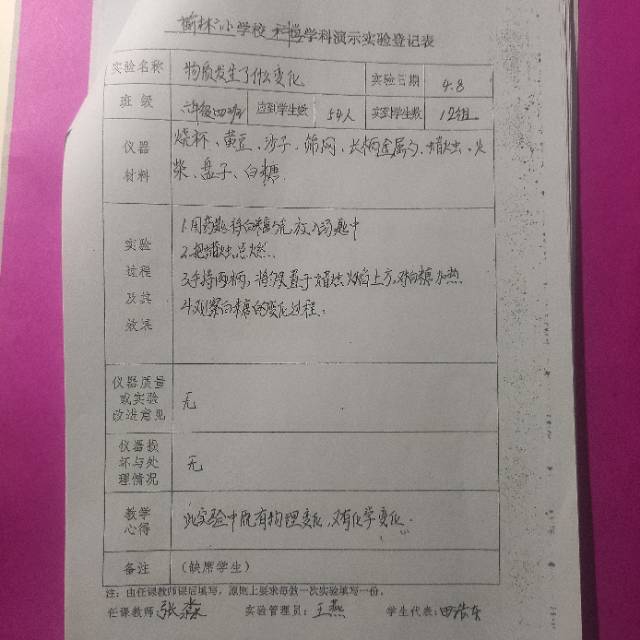 榆林小学校 科学学科演示实验登记表
实验名称 物质发生了什么变化 实验日期 4.8
班级 六年级四班 应到学生数 54人 实到学生数 12组
仪器 烧杯、黄豆、沙子、筛网、长柄金属勺、蜡烛、火
材料 柴、盘子、白糖
实验 1.用药匙将白糖 放入汤匙中
2.把蜡烛点燃
过程 3.手持两柄，将勺置于蜡烛火焰上方，对白糖加热
及其 4.观察白糖的变化过程。
效果
仪器质量
或实验 无
改进意见
仪器损
坏与处 无
理情况
教学 此实验中既有物理变化，又有化学变化.
心得
备注 (缺席学生)
注：由任课教师课后填写，原则上要求每做一次实验填写一份。
任课教师：张淼 实验管理员：王燕 学生代表：田浩东